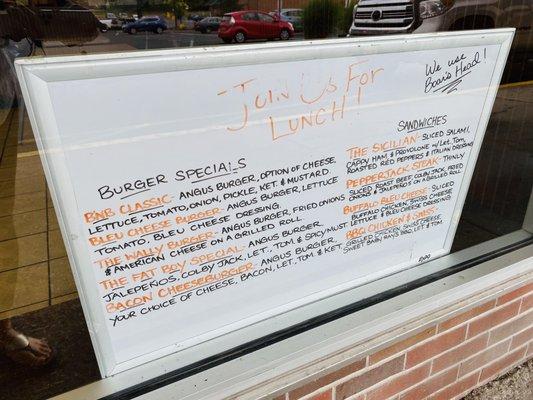 - Join Us For
LUNCH!
We use
Boar's Head!
BURGER SPECIALS
BNB CLASSIC - ANGUS BURGER, OPTION OF CHEESE,
LETTUCE, TOMATO, ONION, PICKLE, KET. & MUSTARD
BLEU CHEESE BURGER - ANGUS BURGER, LETTUCE
TOMATO, BLEU CHEESE DRESSING.
THE WALLY BURGER - ANGUS BURGER, FRIED ONIONS
& AMERICAN CHEESE ON A GRILLED ROLL.
THE FAT BOY SPECIAL - ANGUS BURGER,
JALEPEÑOS, COLBY JACK, LET., TOM, & SPICY MUST.
BACON CHEESEBURGER - ANGUS BURGER,
YOUR CHOICE OF CHEESE, BACON, LET., TOM & KET.
SANDWICHES
THE SICILIAN - SLICED SALAMI,
CAPPY HAM, & PROVOLONE W/ LET. TOM,
ROASTED RED PEPPERS & ITALIAN DRESSING
PEPPERJACK STEAK - THINLY
SLICED ROAST BEEF, COLBY JACK, FRIED
ONIONS & JALEPEÑOS ON A GRILLED ROLL
BUFFALO BLEU CHEESE - SLICED
BUFFALO CHICKEN, SWISS CHEESE
LETTUCE & BLEU CHEESE DRESSING
BBQ CHICKEN & SWISS -
GRILLED CHICKEN, SWISS CHEESE,
SWEET BABY RAYS BBQ, LET & TOM.
EXPO